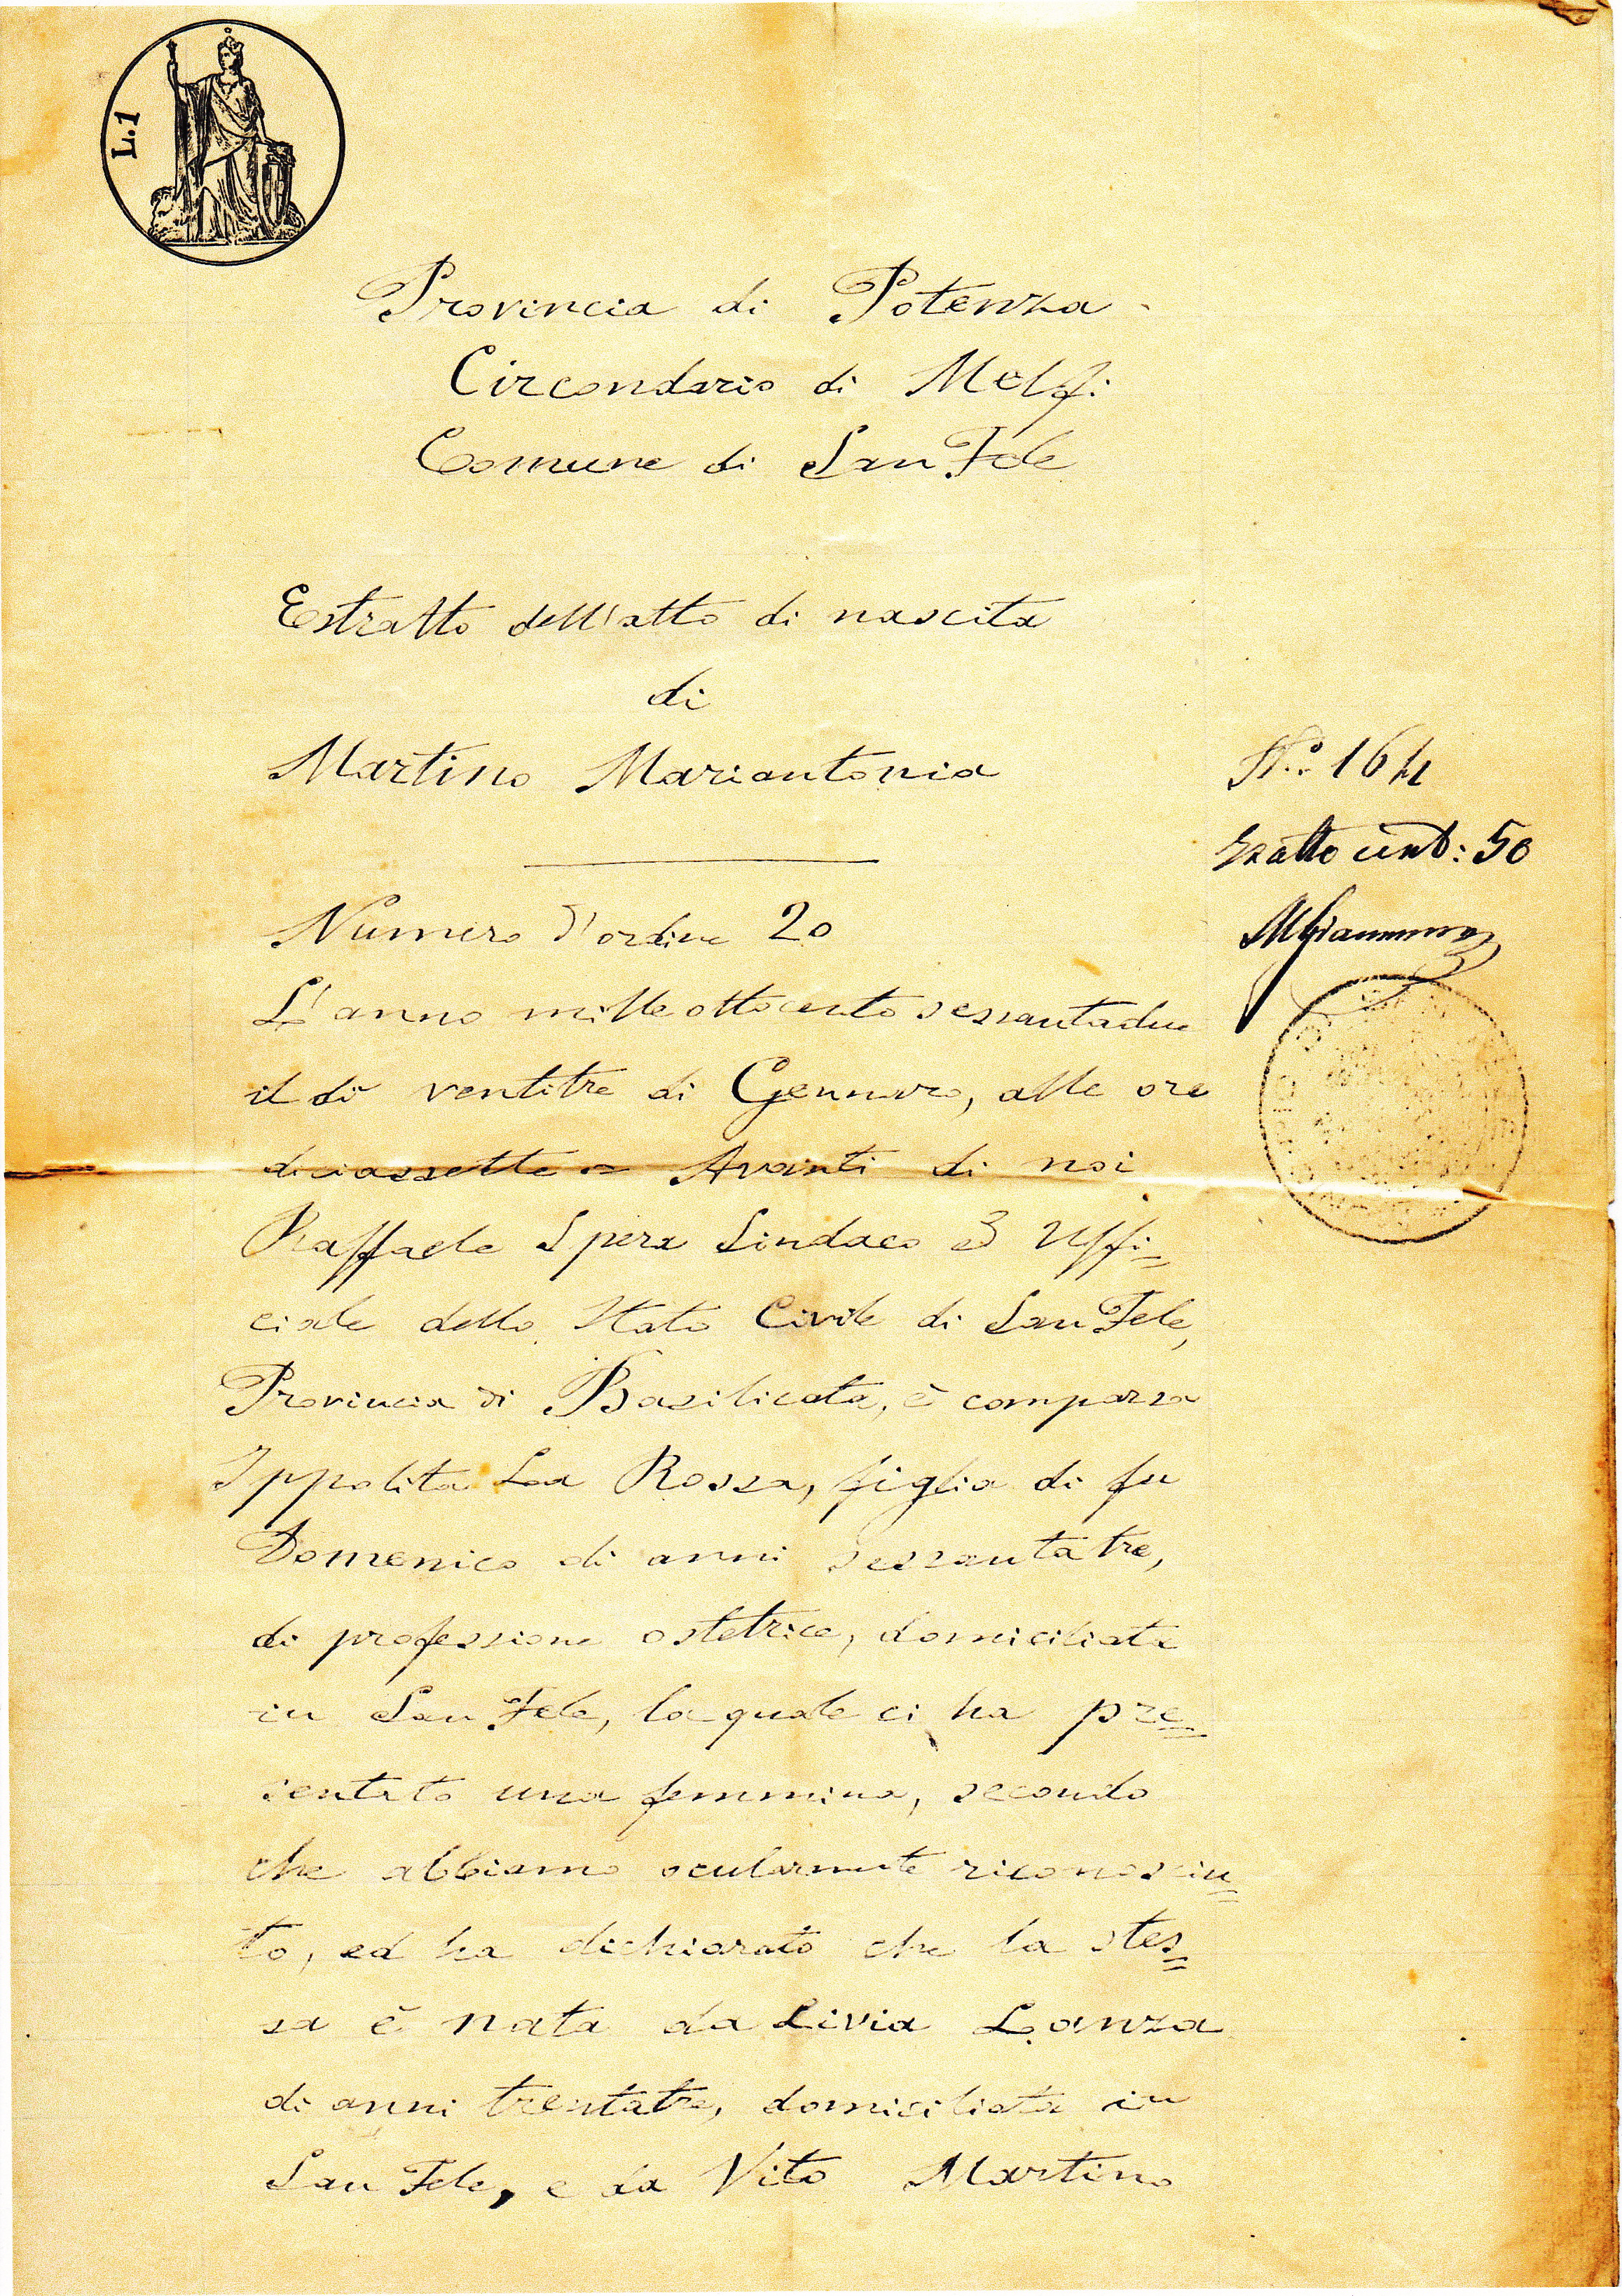 L.1
Provincia di Potenza
Circondario di Melfi
Comune di San Fele
Estratto dell'atto di nascita
di
Martino Mariantonia
N.° 164
Esatto cent: 50
Numero d'ordine 20
L'anno mille ottocento sessantadue
il dì ventitre di Gennaro, alle ore
diciassette = Avanti di noi
Raffaele Spera Sindaco ed Uffi=
ciale dello Stato Civile di San Fele,
Provincia di Basilicata, è comparsa
Ippolita La Rossa, figlia di fu
Domenico di anni sessantatre,
di professione ostetrica, domiciliata
in San Fele, la quale ci ha pre=
sentato una femmina, secondo
che abbiamo ocularmente riconosciu=
to, ed ha dichiarato che la stes=
sa è nata da Livia Lanza
di anni trentatre, domiciliata in
San Fele, e da Vito Martino